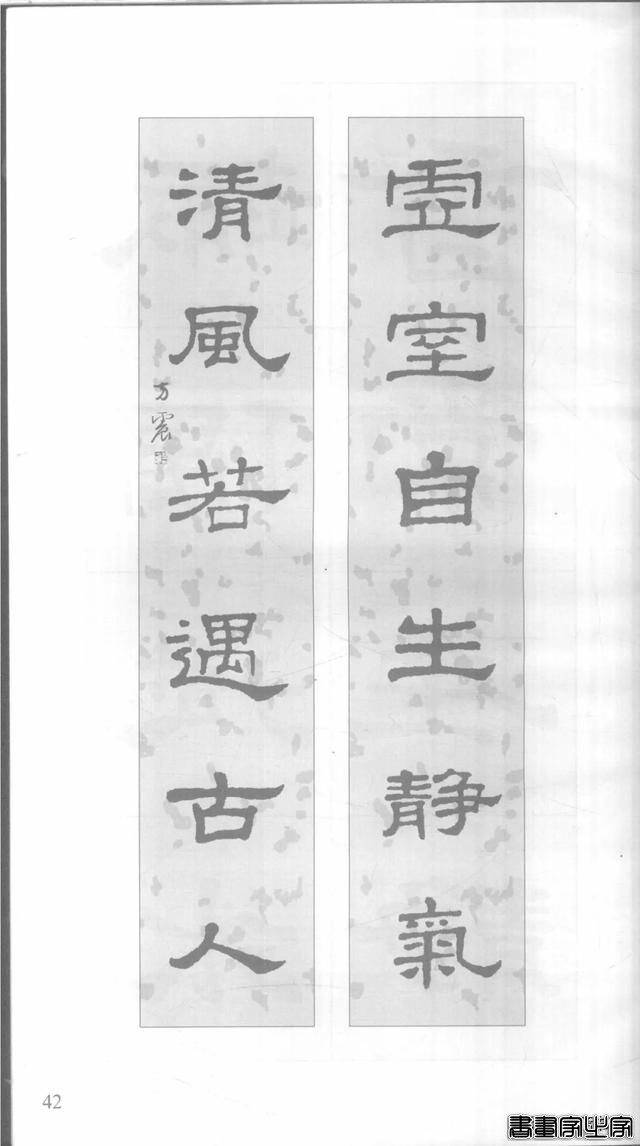 虚室自生静氣
清風若遇古人
方震
42
書畫家必字